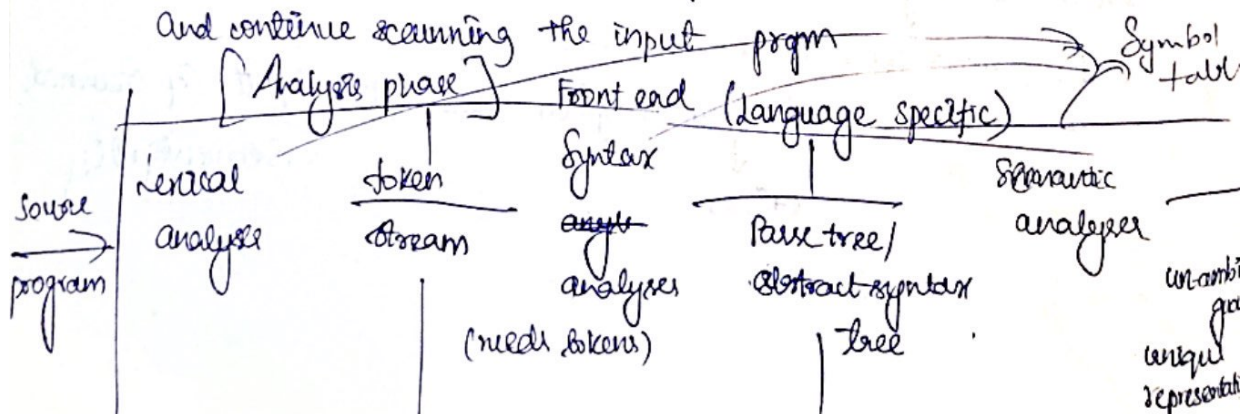 And continue scanning the input prgm
Symbol
table
[Analysis phase] Front end (Language specific)
source
program
Lexical
analyser
token
stream
Syntax
analyser
(needs tokens)
Parse tree/
abstract syntax
tree
Semantic
analyser